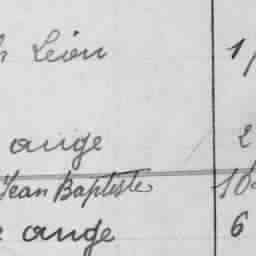 Léon 1
ange 2
Jean Baptiste 10
ange 6